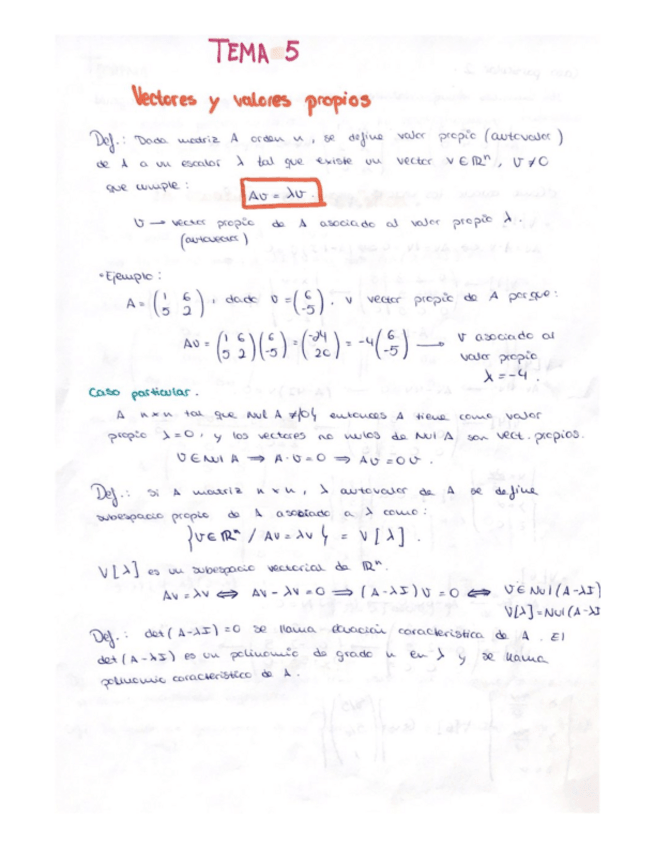 TEMA 5
Vectores y valores propios
Def.: Dada matriz A orden n, se define valor propio (autovalor)
de A a un escalar λ tal que existe un vector v ∈ ℝⁿ, v ≠ 0
que cumple:
Av = λv.
v → vector propio de A asociado al valor propio λ.
(autovector)
• Ejemplo:
A = (1 6; 5 2), dado v = (6; -5), v vector propio de A porque:
Av = (1 6; 5 2)(6; -5) = (-24; 20) = -4(6; -5) → v asociado al
valor propio
λ = -4.
Caso particular.
A n×n tal que Nul A ≠ {0} entonces A tiene como valor
propio λ = 0, y los vectores no nulos de Nul A son vect. propios.
v ∈ Nul A ⇒ A·v = 0 ⇒ Av = 0v.
Def.: Si A matriz n×n, λ autovalor de A se define
subespacio propio de A asociado a λ como:
{v ∈ ℝⁿ / Av = λv} = V[λ].
V[λ] es un subespacio vectorial de ℝⁿ.
Av = λv ⇔ Av - λv = 0 ⇒ (A - λI)v = 0 ⇔ v ∈ Nul(A - λI)
V[λ] = Nul(A - λI
Def.: det(A - λI) = 0 se llama ecuación característica de A. El
det(A - λI) es un polinomio de grado n en λ y se llama
polinomio característico de A.